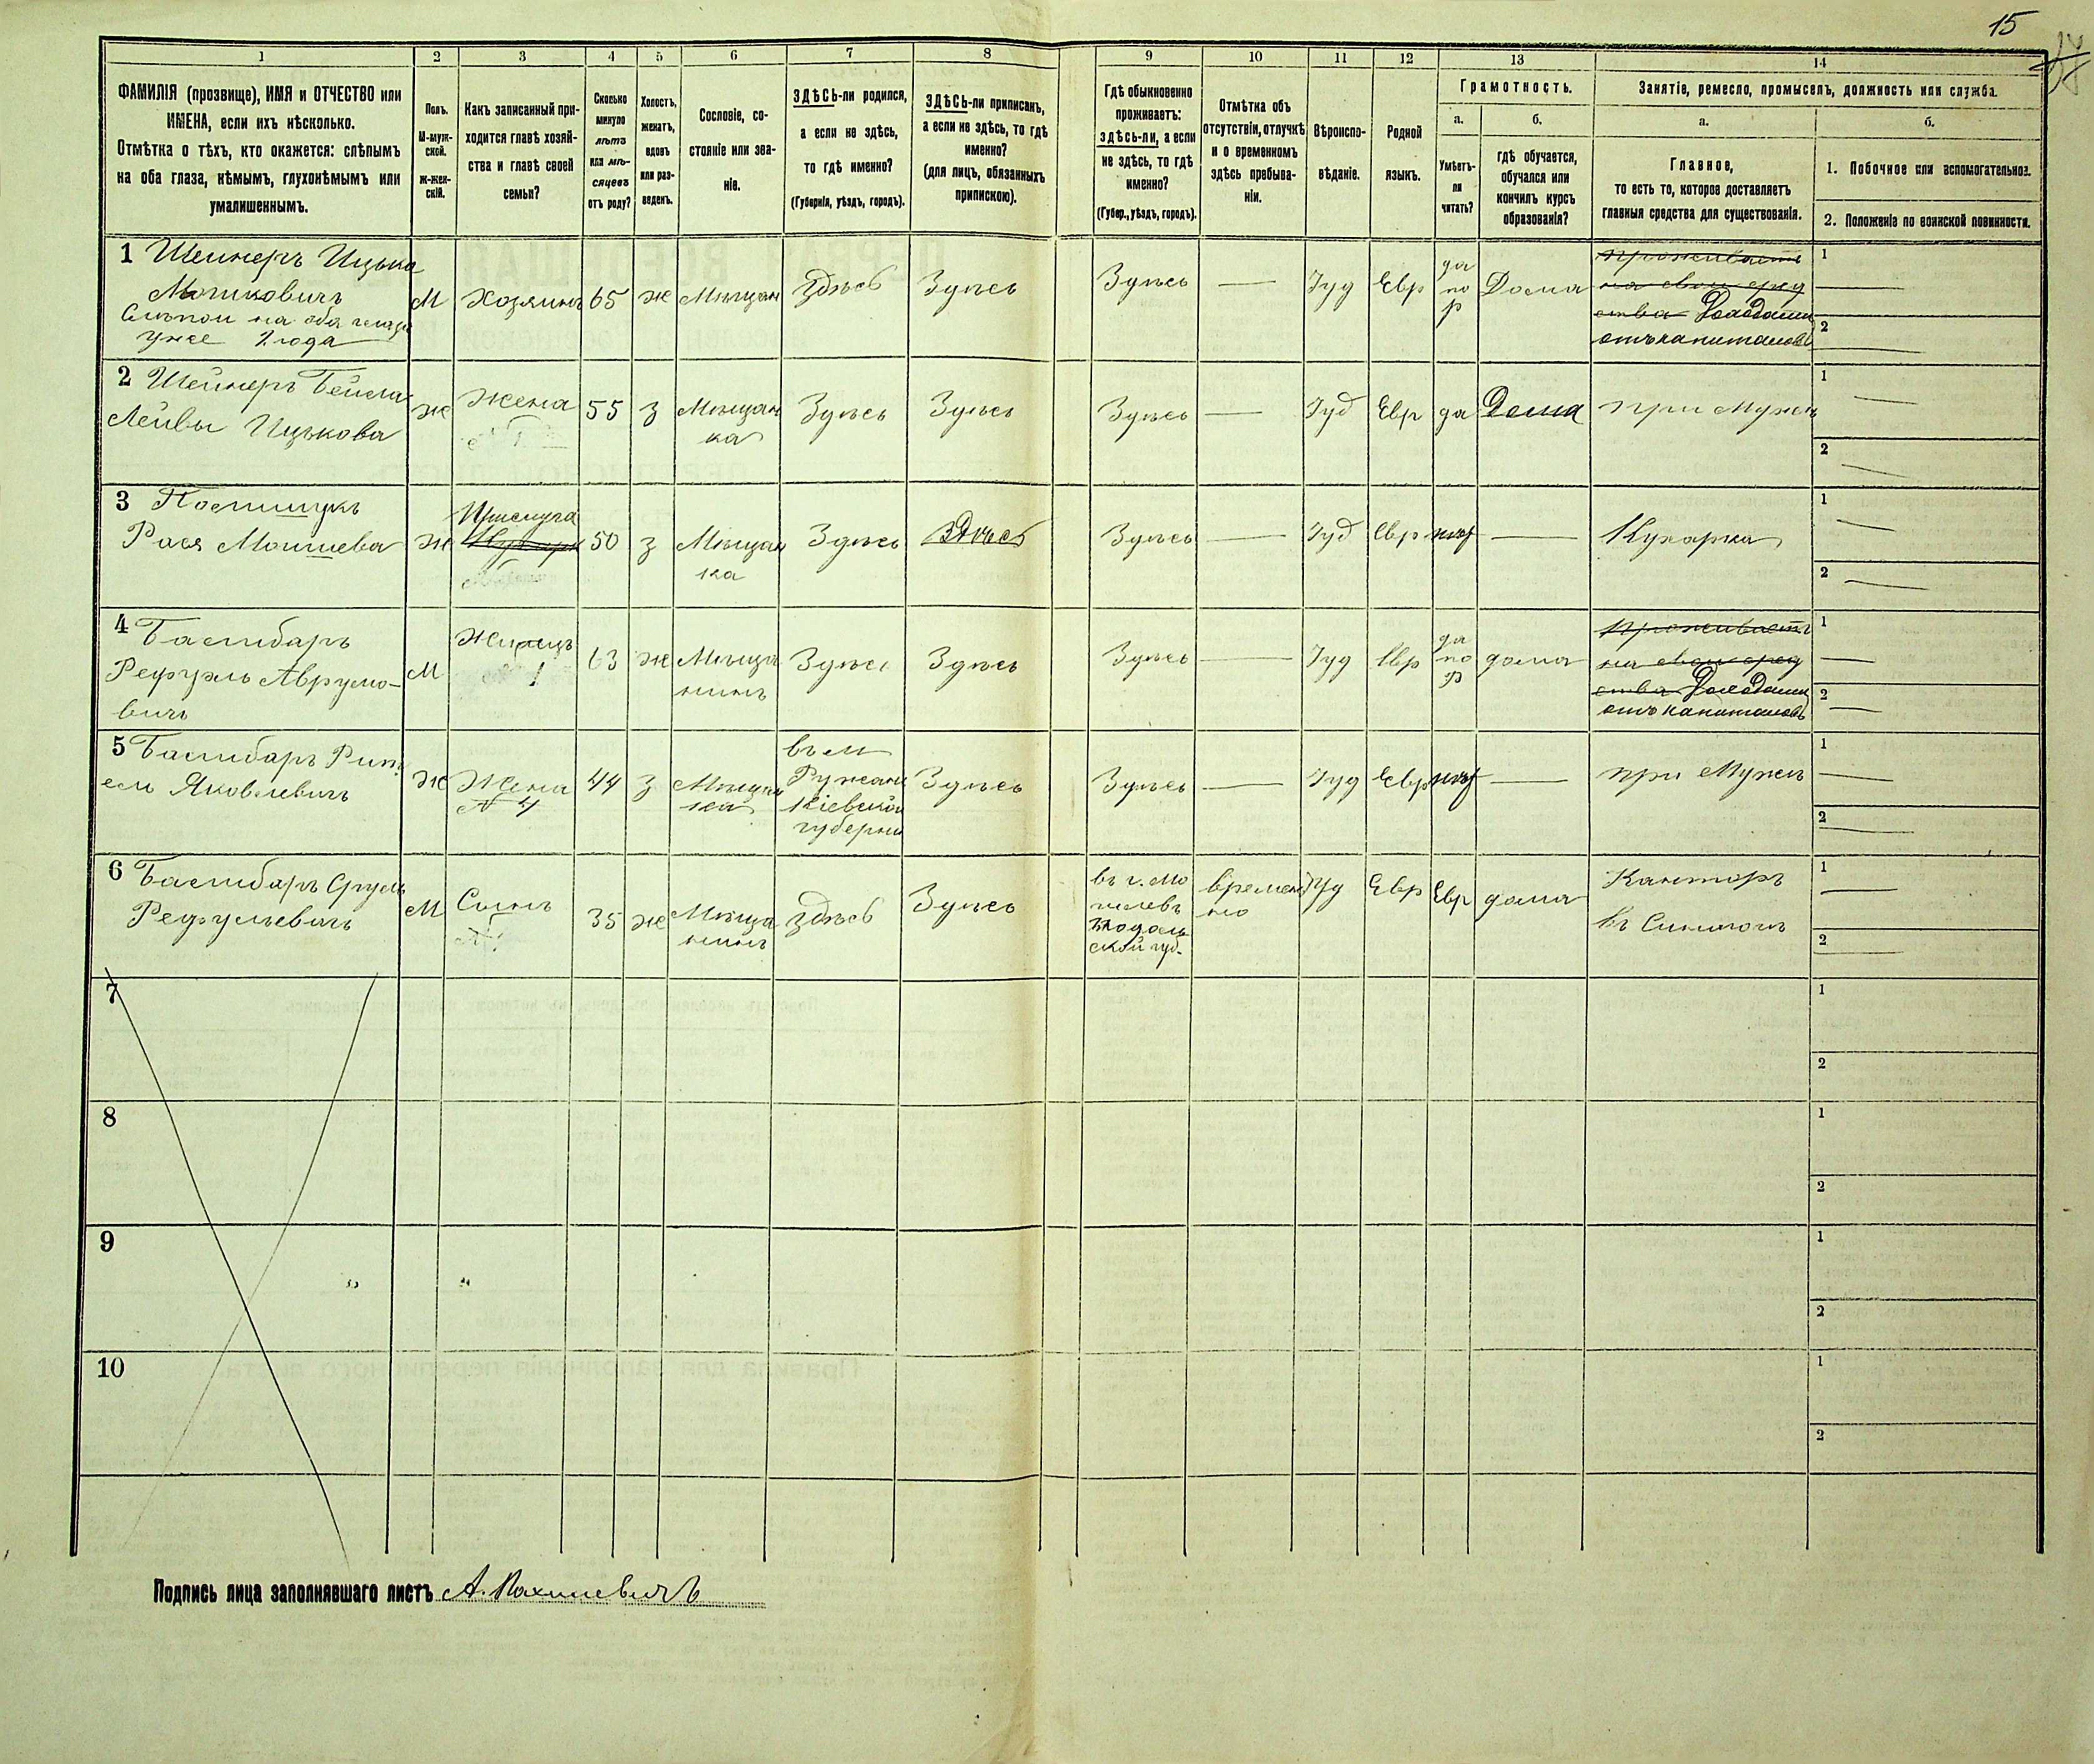 15
1 2 3 4 5 6 7 8 9 10 11 12 13 14
ФАМИЛІЯ (прозвище), ИМЯ и ОТЧЕСТВО или
ИМЕНА, если ихъ нѣсколько.
Отмѣтка о тѣхъ, кто окажется: слѣпымъ
на оба глаза, нѣмымъ, глухонѣмымъ или
умалишеннымъ.
Полъ.
М-муж-
ской.
ж-жен-
скій.
Какъ записанный при-
ходится главѣ хозяй-
ства и главѣ своей
семьи?
Сколько
минуло
лѣтъ
или мѣ-
сяцевъ
отъ роду?
Холостъ,
женатъ,
вдовъ
или раз-
веденъ.
Сословіе, со-
стояніе или зва-
ніе.
ЗДѢСЬ-ли родился,
а если не здѣсь,
то гдѣ именно?
(Губернія, уѣздъ, городъ).
ЗДѢСЬ-ли приписанъ,
а если не здѣсь, то гдѣ
именно?
(для лицъ, обязанныхъ
припискою).
Гдѣ обыкновенно
проживаетъ:
здѣсь-ли, а если
не здѣсь, то гдѣ
именно?
(Губер., уѣздъ, городъ).
Отмѣтка объ
отсутствіи, отлучкѣ
и о временномъ
здѣсь пребыва-
ніи.
Вѣроиспо-
вѣданіе.
Родной
языкъ.
Грамотность.
а.
Умѣетъ-
ли
читать?
б.
гдѣ обучается,
обучался или
кончилъ курсъ
образованія?
Занятіе, ремесло, промыселъ, должность или служба.
а.
Главное,
то есть то, которое доставляетъ
главныя средства для существованія.
б.
1. Побочное или вспомогательное.
2. Положеніе по воинской повинности.
1 Шейнеръ Ицько
Мошковичъ
Слѣпой на оба глаза
уже 2 года
М
Хозяинъ
65
ж
Мѣщан
Здѣсь
Здѣсь
Здѣсь
—
Іуд
Евр
да
по
р
Дома
проживаетъ
на свои сред
ства Доходами
отъ капиталовъ
1
2
2 Шейнеръ Бейла
Лейвы Ицькова
Ж
Жена
55
з
Мѣщан
ка
Здѣсь
Здѣсь
Здѣсь
—
Іуд
Евр
да
Дома
при Мужѣ
1
2
3
Рася Мошиева
Ж
Прислуга
50
з
Мѣщан
ка
Здѣсь
Здѣсь
Здѣсь
—
Іуд
Евр
нѣт
—
Кухарка
1
2
4
Рефуль Аврумо-
вичъ
М
Жилецъ
1
63
ж
Мѣща
нинъ
Здѣсь
Здѣсь
Здѣсь
—
Іуд
Евр
да
по
р
дома
проживаетъ
на свои сред
ства Доходами
отъ капиталовъ
1
2
5
Яковлевичъ
Ж
Жена
№ 4
44
з
Мѣщан
ка
въ м
Ружинѣ
Кіевской
губерніи
Здѣсь
Здѣсь
—
Іуд
Евр
нѣт
—
при Мужѣ
1
2
6
Рефульевичъ
М
Сынъ
35
ж
Мѣща
нинъ
Здѣсь
Здѣсь
въ г. Мо
гилевѣ
Подоль
ской губ.
времен
но
Іуд
Евр
Евр
дома
Канторъ
1
2
7
1
2
8
1
2
9
1
2
10
1
2
Подпись лица заполнявшаго листъ